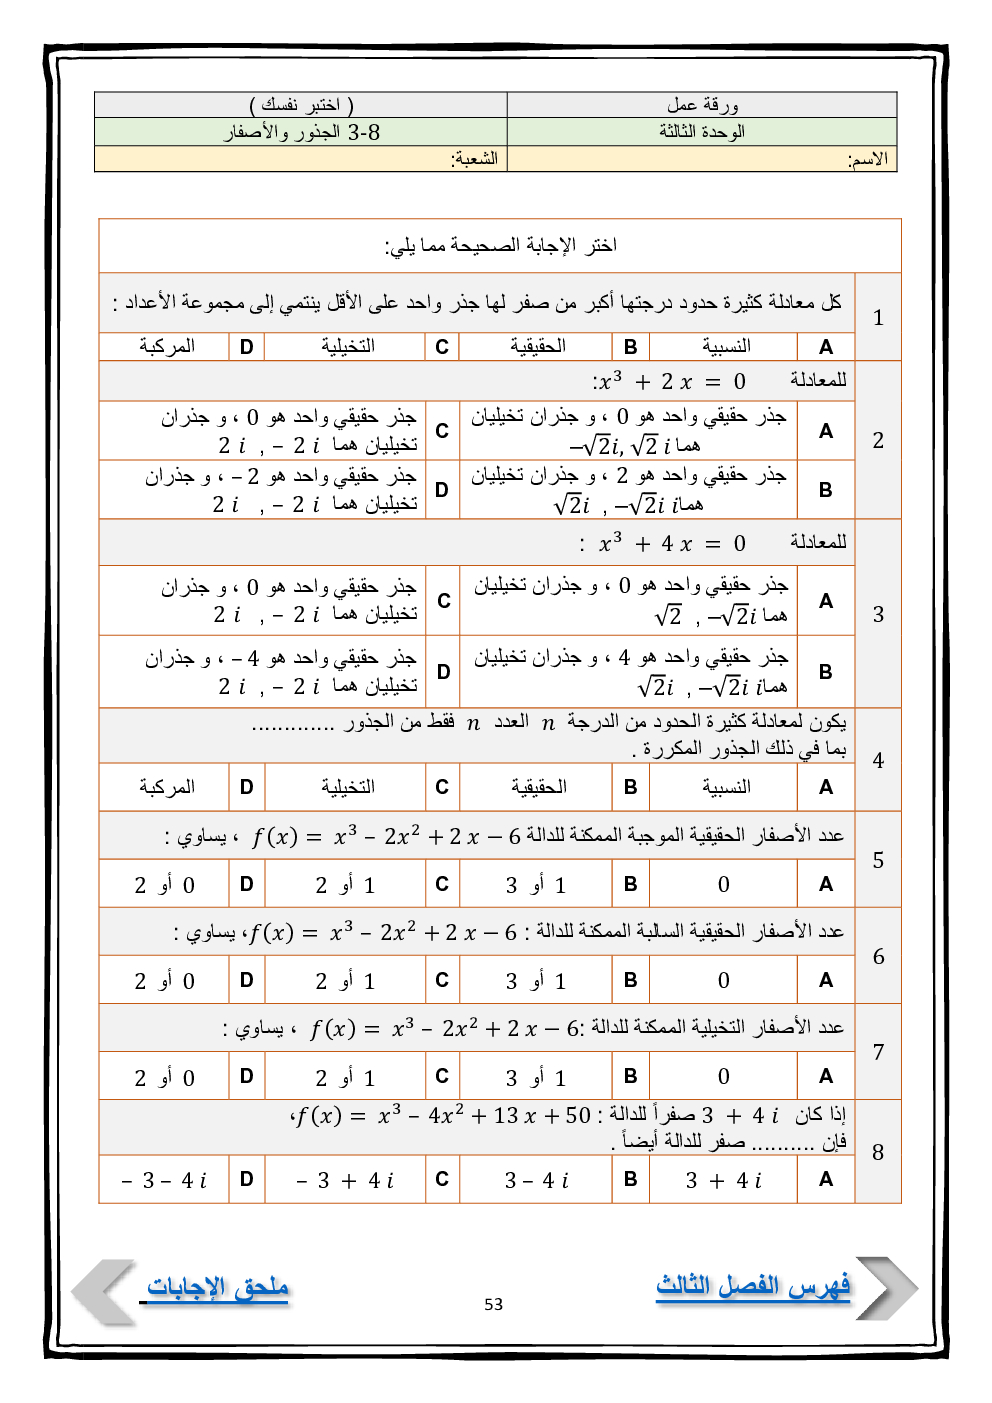 ورقة عمل ( اختبر نفسك )
الوحدة الثالثة 3-8 الجذور والأصفار
الاسم: الشعبة:
اختر الإجابة الصحيحة مما يلي:
1 كل معادلة كثيرة حدود درجتها أكبر من صفر لها جذر واحد على الأقل ينتمي إلى مجموعة الأعداد :
A النسبية B الحقيقية C التخيلية D المركبة
2 للمعادلة x³ + 2 x = 0:
A جذر حقيقي واحد هو 0 ، و جذران تخيليان
هما −√2i, √2 i
C جذر حقيقي واحد هو 0 ، و جذران
تخيليان هما 2 i , – 2 i
B جذر حقيقي واحد هو 2 ، و جذران تخيليان
هما √2i , −√2i i
D جذر حقيقي واحد هو 2 – ، و جذران
تخيليان هما 2 i , – 2 i
3 للمعادلة x³ + 4 x = 0 :
A جذر حقيقي واحد هو 0 ، و جذران تخيليان
هما √2 , −√2i
C جذر حقيقي واحد هو 0 ، و جذران
تخيليان هما 2 i , – 2 i
B جذر حقيقي واحد هو 4 ، و جذران تخيليان
هما √2i , −√2i i
D جذر حقيقي واحد هو 4 – ، و جذران
تخيليان هما 2 i , – 2 i
4 يكون لمعادلة كثيرة الحدود من الدرجة n العدد n فقط من الجذور .............
بما في ذلك الجذور المكررة .
A النسبية B الحقيقية C التخيلية D المركبة
5 عدد الأصفار الحقيقية الموجبة الممكنة للدالة f(x) = x³ – 2x² + 2 x − 6 ، يساوي :
A 0 B 1 أو 3 C 1 أو 2 D 0 أو 2
6 عدد الأصفار الحقيقية السالبة الممكنة للدالة : f(x) = x³ – 2x² + 2 x − 6، يساوي :
A 0 B 1 أو 3 C 1 أو 2 D 0 أو 2
7 عدد الأصفار التخيلية الممكنة للدالة :f(x) = x³ – 2x² + 2 x − 6 ، يساوي :
A 0 B 1 أو 3 C 1 أو 2 D 0 أو 2
8 إذا كان 3 + 4 i صفراً للدالة : f(x) = x³ – 4x² + 13 x + 50،
فإن .......... صفر للدالة أيضاً .
A 3 + 4 i B 3 – 4 i C – 3 + 4 i D – 3 – 4 i
فهرس الفصل الثالث
53
ملحق الإجابات